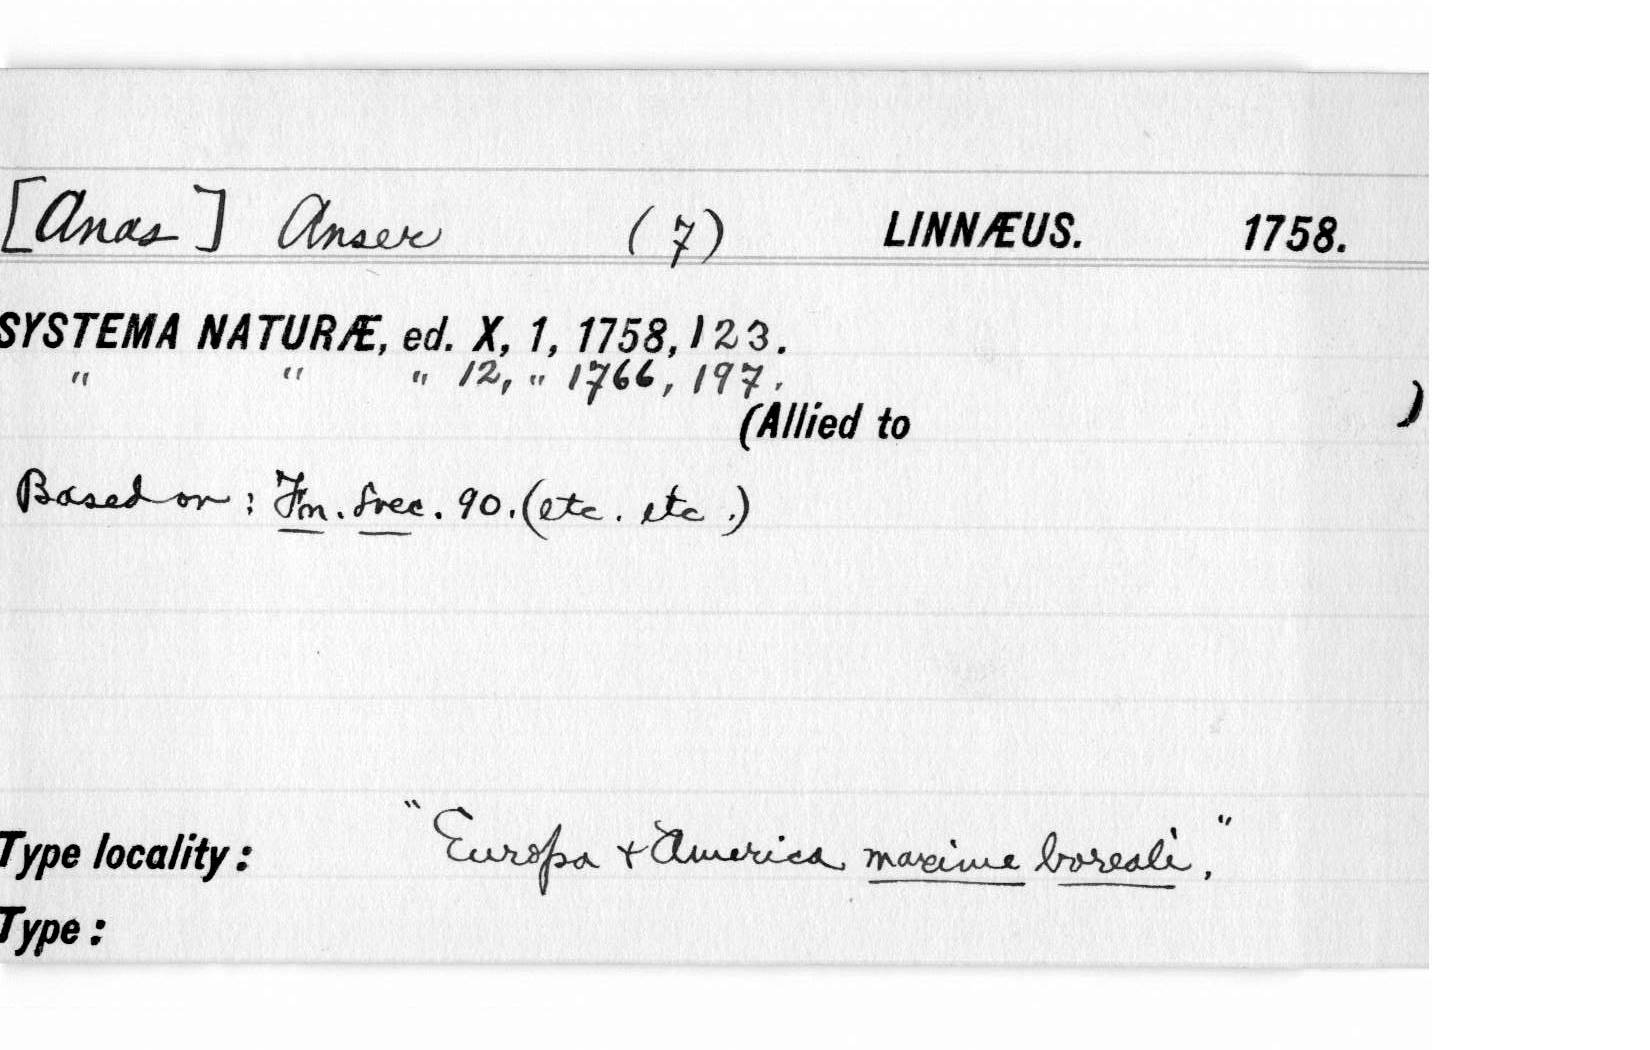 [Anas] Anser (7) LINNÆUS. 1758.
SYSTEMA NATURÆ, ed. X, 1, 1758, 123.
" " " 12, " 1766, 197.
(Allied to )
Based on: Fn. Svec. 90. (etc. etc.)
Type locality: "Europa + America maxime boreali,"
Type: